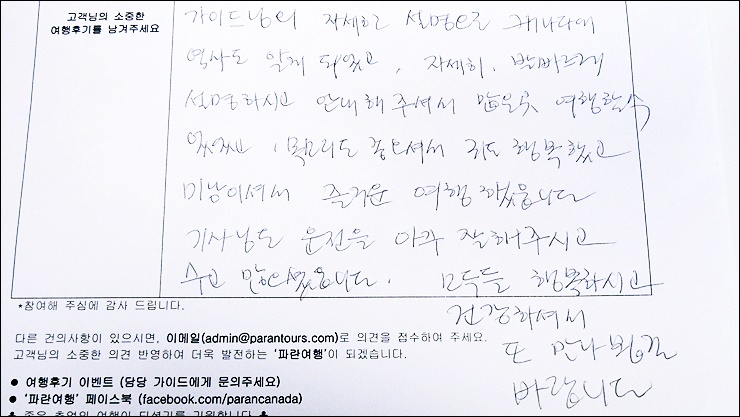 고객님의 소중한
여행후기를 남겨주세요
가이드님의 자세한 설명으로 캐나다에
역사도 알게 되었고, 자세히. 발바르게
설명하시고 안내해 주셔서 많은곳 여행할수
있었고, 목소리도 좋으셔서 귀도 행복했고
미남이셔서 즐거운 여행 했습니다
기사님도 운전을 아주 잘해주시고
수고 많으셨습니다. 모두들 행복하시고
건강하셔서
또 만나 뵙길
바랍니다
*참여해 주심에 감사 드립니다.
다른 건의사항이 있으시면, 이메일(admin@parantours.com)로 의견을 접수하여 주세요.
고객님의 소중한 의견 반영하여 더욱 발전하는 '파란여행'이 되겠습니다.
● 여행후기 이벤트 (담당 가이드에게 문의주세요)
● '파란여행' 페이스북 (facebook.com/parancanada)
♣ 좋은 추억의 여행이 되셨기를 기원합니다 ♣